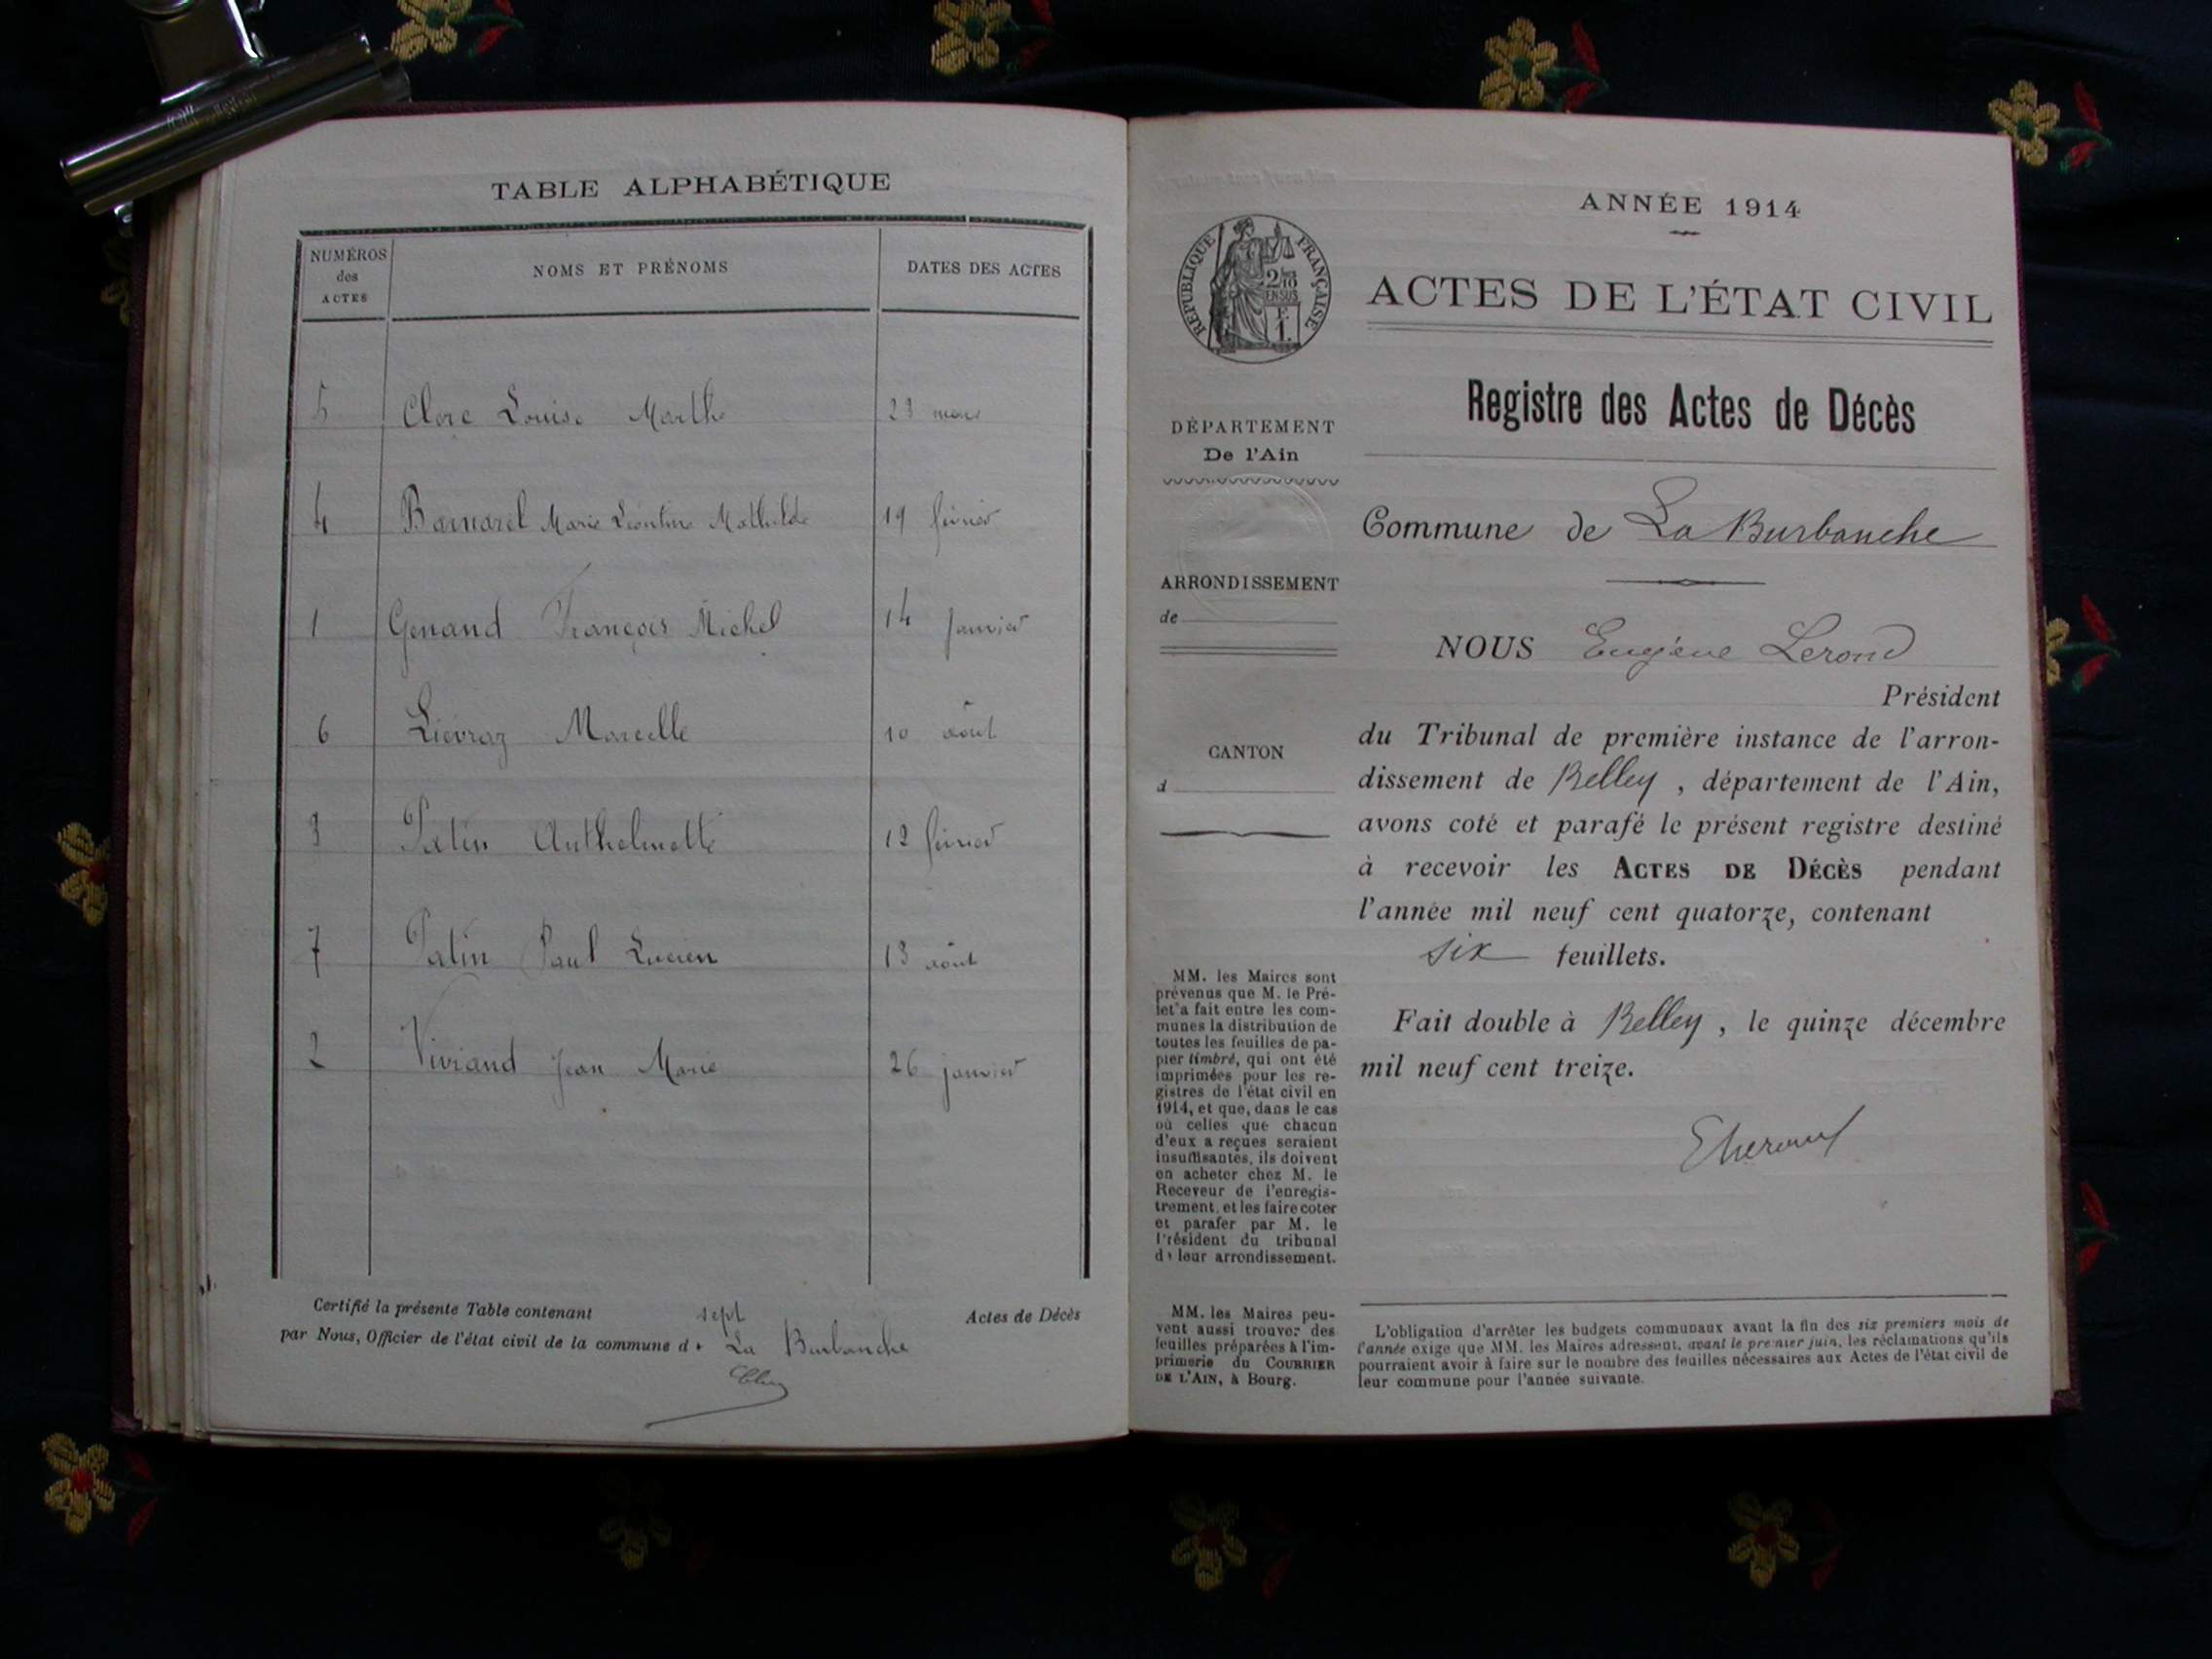 TABLE ALPHABÉTIQUE
NUMÉROS
des
ACTES
NOMS ET PRÉNOMS
DATES DES ACTES
5 Clerc Louise Marthe 23 mars
4 Marie Léontine Mathilde 19 février
1 Genand François Michel 14 janvier
6 Liévraz Marcelle 10 août
3 Patin Anthelmette 12 février
7 Patin Paul Lucien 13 août
2 Viviand Jean Marie 26 janvier
Certifié la présente Table contenant sept Actes de Décès
par Nous, Officier de l'état civil de la commune de La Burbanche
ANNÉE 1914
RÉPUBLIQUE FRANÇAISE
ACTES DE L'ÉTAT CIVIL
Registre des Actes de Décès
DÉPARTEMENT
De l'Ain
Commune de La Burbanche
ARRONDISSEMENT
de
CANTON
d
NOUS Eugène Lerond
Président
du Tribunal de première instance de l'arron-
dissement de Belley, département de l'Ain,
avons coté et parafé le présent registre destiné
à recevoir les ACTES DE DÉCÈS pendant
l'année mil neuf cent quatorze, contenant
six feuillets.
Fait double à Belley, le quinze décembre
mil neuf cent treize.
MM. les Maires sont
prévenus que M. le Pré-
fet a fait entre les com-
munes la distribution de
toutes les feuilles de pa-
pier timbré, qui ont été
imprimées pour les re-
gistres de l'état civil en
1914, et que, dans le cas
où celles que chacun
d'eux a reçues seraient
insuffisantes, ils doivent
en acheter chez M. le
Receveur de l'enregis-
trement, et les faire coter
et parafer par M. le
Président du tribunal
de leur arrondissement.
MM. les Maires peu-
vent aussi trouver des
feuilles préparées à l'im-
primerie du COURRIER
DE L'AIN, à Bourg.
L'obligation d'arrêter les budgets communaux avant la fin des six premiers mois de
l'année exige que MM. les Maires adressent, avant le premier juin, les réclamations qu'ils
pourraient avoir à faire sur le nombre des feuilles nécessaires aux Actes de l'état civil de
leur commune pour l'année suivante.